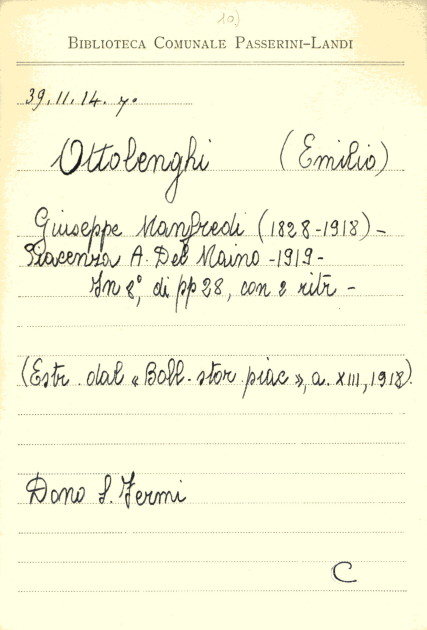 10)
BIBLIOTECA COMUNALE PASSERINI-LANDI
39.11.14.7°
Ottolenghi (Emilio)
Giuseppe Manfredi (1828-1918) -
Piacenza A. Del Maino - 1919 -
In 8°, di pp 28, con 2 ritr -
(Estr. dal « Boll. stor. piac », a. XIII, 1918).
Dono S. Fermi
C